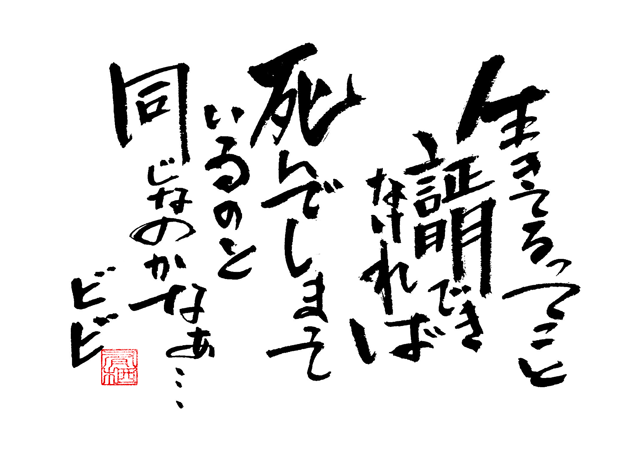 生きてるってこと
証明でき
なければ
死んでしまて
いるのと
同じなのかなぁ…
ビビ